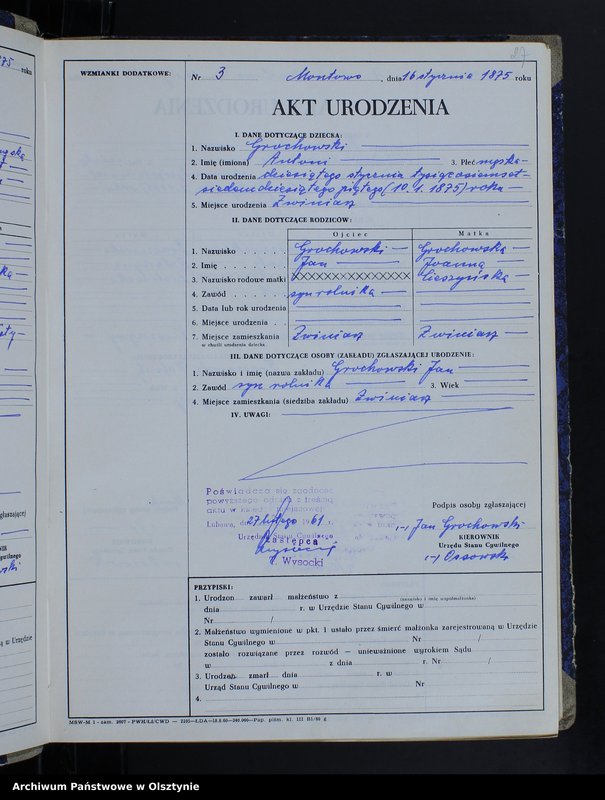 27
WZMIANKI DODATKOWE:
Nr 3 Montowo, dnia 16 stycznia 1875 roku
AKT URODZENIA
I. DANE DOTYCZĄCE DZIECKA:
1. Nazwisko Grochowski
2. Imię (imiona) Antoni 3. Płeć męska
4. Data urodzenia dziesiątego stycznia tysiąc osiemset
siedemdziesiątego piątego (10. 1. 1875) roku
5. Miejsce urodzenia Zwiniarz
II. DANE DOTYCZĄCE RODZICÓW:
Ojciec Matka
1. Nazwisko Grochowski Grochowska
2. Imię Jan Joanna
3. Nazwisko rodowe matki XXXXXXXXXXXXX Cieszyńska
4. Zawód syn rolnika
5. Data lub rok urodzenia
6. Miejsce urodzenia
7. Miejsce zamieszkania Zwiniarz Zwiniarz
w chwili urodzenia dziecka
III. DANE DOTYCZĄCE OSOBY (ZAKŁADU) ZGŁASZAJĄCEJ URODZENIE:
1. Nazwisko i imię (nazwa zakładu) Grochowski Jan
2. Zawód syn rolnika 3. Wiek
4. Miejsce zamieszkania (siedziba zakładu) Zwiniarz
IV. UWAGI:
Poświadcza się zgodność
powyższego odpisu z treścią
aktu w księdze
Lubawa, dn. 27 lutego 1961 r.
Urzędu Stanu Cywilnego
Zastępca
Wysocki
Podpis osoby zgłaszającej
(-) Jan Grochowski
KIEROWNIK
Urzędu Stanu Cywilnego
(-) Ossowski
PRZYPISKI:
1. Urodzon zawarł małżeństwo z
(nazwisko i imię współmałżonka)
dnia r. w Urzędzie Stanu Cywilnego w
Nr /
2. Małżeństwo wymienione w pkt. 1 ustało przez śmierć małżonka zarejestrowaną w Urzędzie
Stanu Cywilnego w Nr /
zostało rozwiązane przez rozwód — unieważnione wyrokiem Sądu
w z dnia r. Nr /
3. Urodzon zmarł dnia r. w
Urząd Stanu Cywilnego w Nr
4.
MSW-M 1 - zam. 2607 - PWH/Łż/CWD
Archiwum Państwowe w Olsztynie